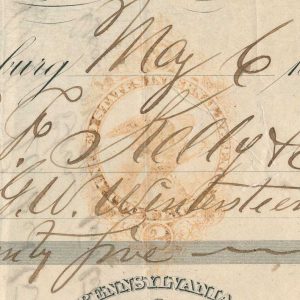 burg May 6
F. S Kelly &
G. W. Wintersteen
nty five
PENNSYLVANIA